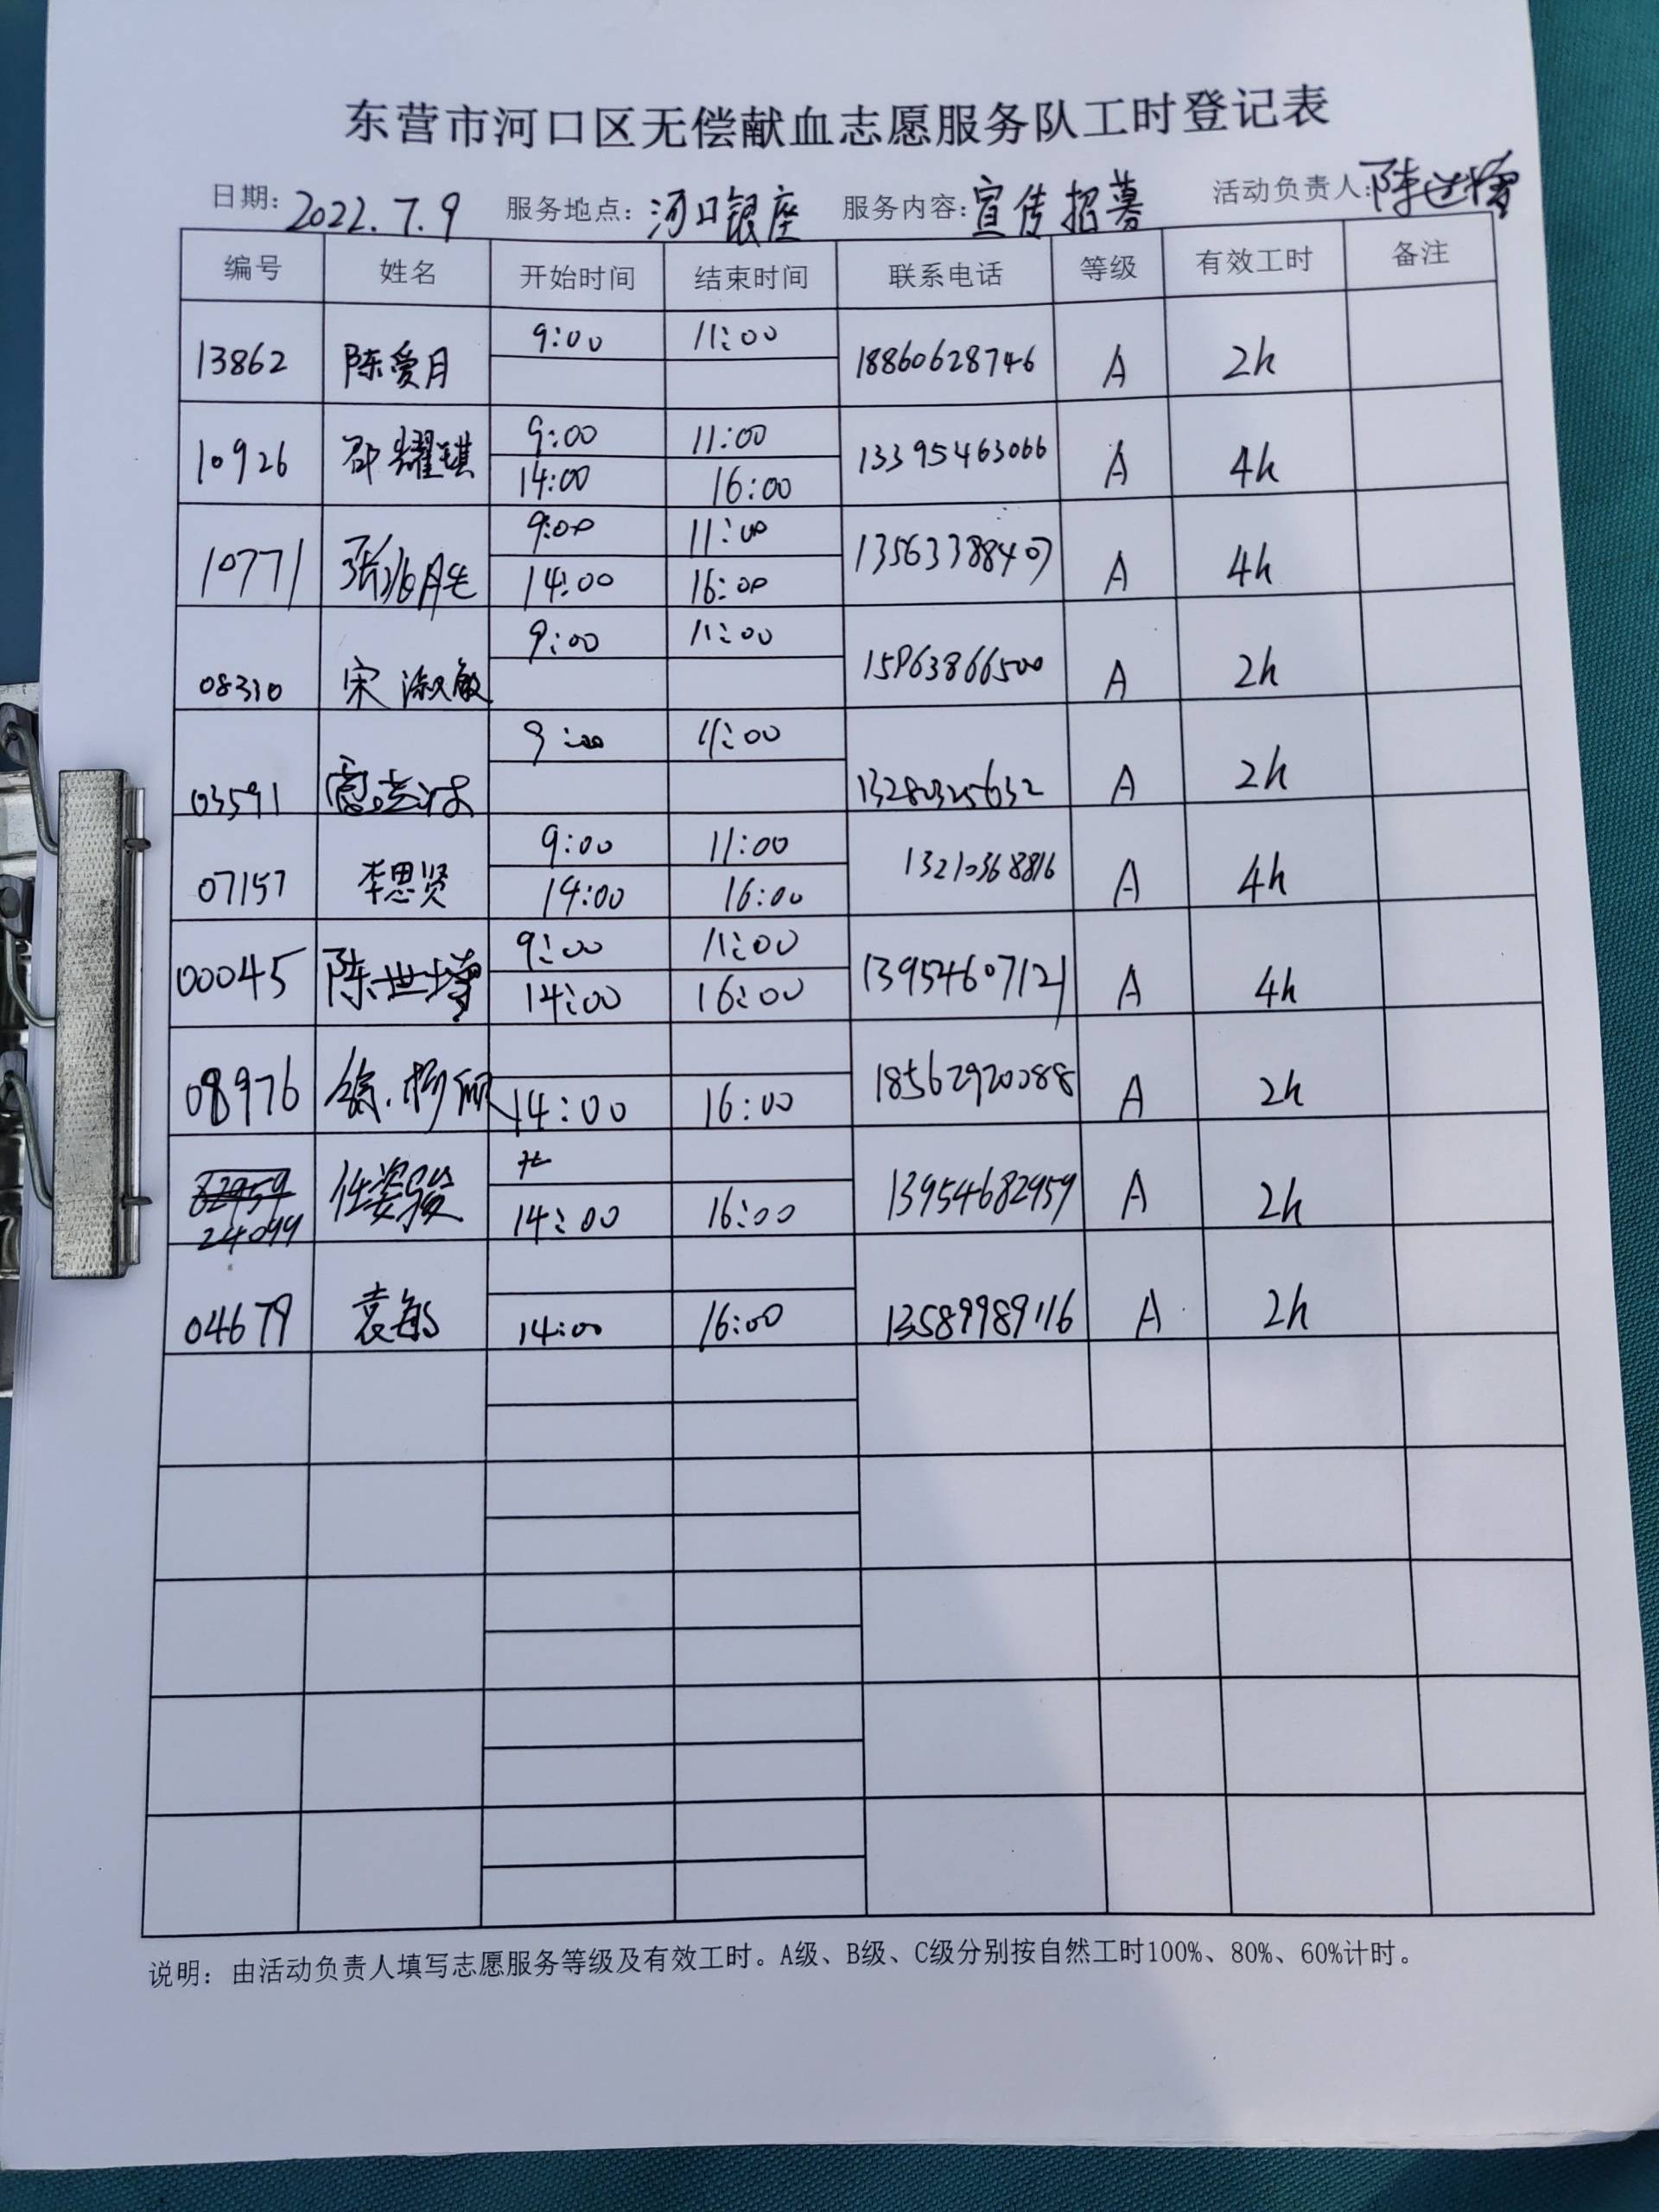 东营市河口区无偿献血志愿服务队工时登记表
日期: 2022.7.9 服务地点: 河口银座 服务内容: 宣传招募 活动负责人: 陈世增
编号 姓名 开始时间 结束时间 联系电话 等级 有效工时 备注
13862 陈爱月 9:00 11:00 18860628746 A 2h
10926 邵耀琪 9:00 11:00 13395463066 A 4h
14:00 16:00
10771 张兆胜 9:00 11:00 13563388407 A 4h
14:00 16:00
08310 宋淑敏 9:00 11:00 15963866500 A 2h
03591 9:00 11:00 13280325632 A 2h
07157 李思贤 9:00 11:00 13210368816 A 4h
14:00 16:00
00045 陈世增 9:00 11:00 13954607121 A 4h
14:00 16:00
08976 14:00 16:00 18562920088 A 2h
82959 任姿骏 13954682959 A 2h
24099 14:00 16:00
04679 袁敏 14:00 16:00 13589989116 A 2h
说明: 由活动负责人填写志愿服务等级及有效工时。A级、B级、C级分别按自然工时100%、80%、60%计时。